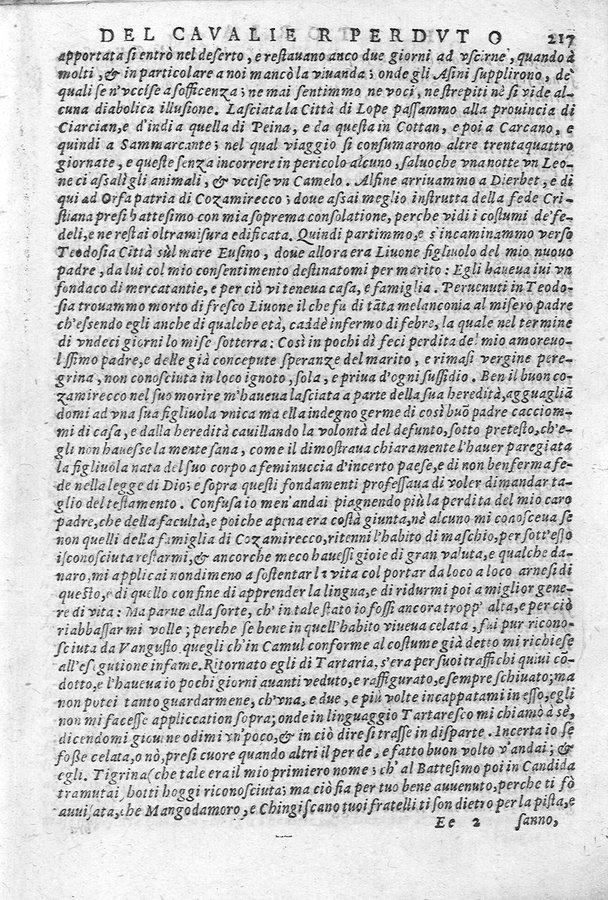 DEL CAVALIER PERDVTO 217
apportata si entrò nel deserto, e restauano anco due giorni ad vscirne, quando à
molti, & in particolare a noi mancò la viuanda; onde gli Asini supplirono, de'
quali se n'vccise a sofficenza; ne mai sentimmo ne voci, ne strepiti nè si vide al-
cuna diabolica illusione. Lasciata la Città di Lope passammo alla prouincia di
Ciarcian, e d'indi a quella di Peina, e da questa in Cottan, e poi a Carcano, e
quindi a Sammarcante; nel qual viaggio si consumarono altre trentaquattro
giornate, e queste senza incorrere in pericolo alcuno, saluoche vna notte vn Leo-
ne ci assalì gli animali, & vccise vn Camelo. Alfine arriuammo a Dierbet, e di
qui ad Orfa patria di Cozamirecco; doue assai meglio instrutta della fede Cri-
stiana presi battesimo con mia soprema consolatione, perche vidi i costumi de' fe-
deli, e ne restai oltramisura edificata. Quindi partimmo, e s'incaminammo verso
Teodosia Città sùl mare Eusino, doue allora era Liuone figliuolo del mio nuouo
padre, da lui col mio consentimento destinatomi per marito: Egli haueua iui vn
fondaco di mercatantie, e per ciò vi teneua casa, e famiglia. Peruenuti in Teodo-
sia trouammo morto di fresco Liuone il che fu di tãta melanconia al misero padre
ch'essendo egli anche di qualche età, caddè infermo di febre, la quale nel termine
di vndeci giorni lo mise sotterra: Così in pochi dì feci perdita del mio amoreuo-
lissimo padre, e delle già concepute speranze del marito, e rimasi vergine pere-
grina, non conosciuta in loco ignoto, sola, e priua d'ogni sussidio. Ben il buon co-
zamirecco nel suo morire m'haueua lasciata a parte della sua heredità, agguaglià
domi ad vna sua figliuola vnica ma ella indegno germe di così buõ padre caccom-
mi di casa, e dalla heredità cauillando la volontà del defunto, sotto pretesto, ch'e-
gli non hauesse la mente sana, come il dimostraua chiaramente l'hauer paregiata
la figliuola nata del suo corpo a feminuccia d'incerto paese, e di non ben ferma fe-
de nella legge di Dio; e sopra questi fondamenti professaua di voler dimandar ta-
glio del testamento. Confusa io men'andai piagnendo più la perdita del mio caro
padre, che della facultà, e poiche apena era costà giunta, nè alcuno mi conosceua se
non quelli della famiglia di Cozamirecco, ritenni l'habito di maschio, per sott'esso
isconosciuta restarmi, & ancorche meco hauessi gioie di gran valuta, e qualche da-
naro, mi applicai nondimeno a sostentar la vita col portar da loco a loco arnesi di
questo, e di quello con fine di apprender la lingua, e di ridurmi poi a miglior gene-
re di vita: Ma parue alla sorte, ch'in tale stato io fossi ancora tropp'alta, e per ciò
riabbassarmi volle; perche se bene in quell'habito viueua celata, fui pur ricono-
sciuta da Vangusto, quegli ch'in Camul conforme al costume già detto mi richiese
all'essegutione infame. Ritornato egli di Tartaria, s'era per suoi traffichi quiui cõ-
dotto, e l'haueua io pochi giorni auanti veduto, e raffigurato, e sempre schiuato; ma
non potei tanto guardarmene, ch'vna, e due, e più volte incappatami in esso, egli
non mi facesse appliccation sopra; onde in linguaggio Tartaresco mi chiamò a sè,
dicendomi giouine odimi vn poco, & in ciò dire si trasse in disparte. Incerta io se
fosse celata, o nò, presi cuore quando altri il perde, e fatto buon volto v'andai; &
egli. Tigrina (che tale era il mio primiero nome; ch'al Battesimo poi in Candida
tramutai) hotti hoggi riconosciuta; ma ciò fia per tuo bene auuenuto, perche ti fò
auuisata, che Mangodamoro, e Chingiscano tuoi fratelli ti son dietro per la pista, e
Ee 2 sanno,